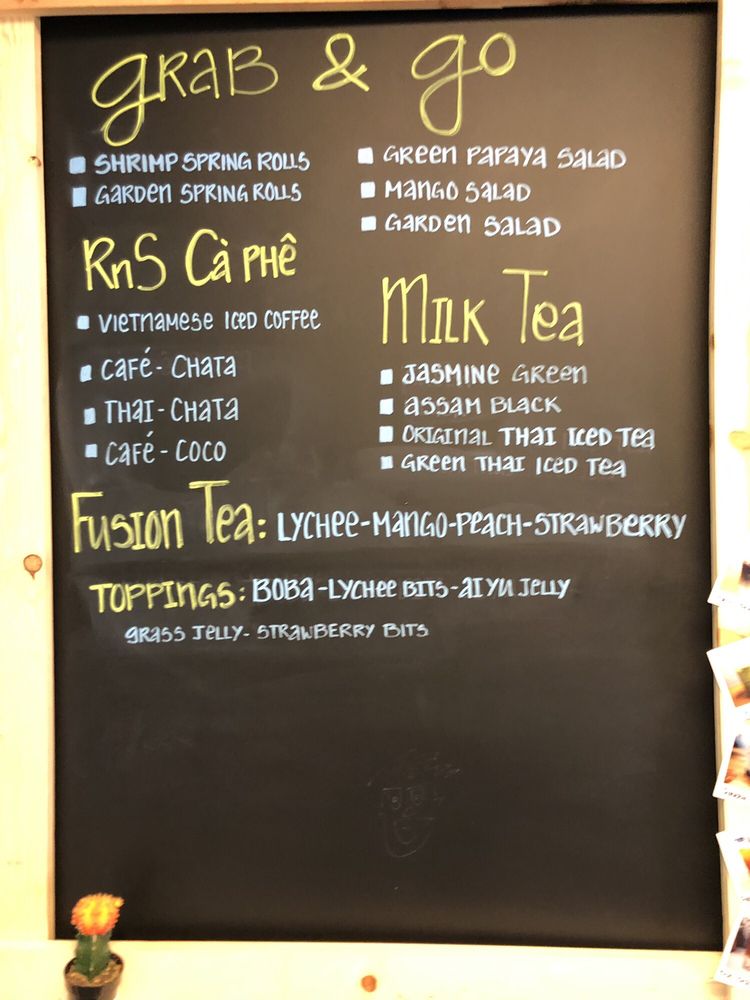 GRAB & GO
SHRIMP SPRING ROLLS
GARDEN SPRING ROLLS
GREEN PAPAYA SALAD
MANGO SALAD
GARDEN SALAD
RnS Cà PHÊ
VIETNAMESE ICED COFFEE
CAFÉ - CHATA
THAI - CHATA
CAFÉ - COCO
MILK Tea
JASMINE GREEN
ASSAM BLACK
ORIGINAL THAI ICED TEA
GREEN THAI ICED TEA
FUSION Tea: LYCHEE-MANGO-PEACH-STRAWBERRY
TOPPINGS: BOBA-LYCHEE BITS-AIYU JELLY
GRASS JELLY- STRAWBERRY BITS